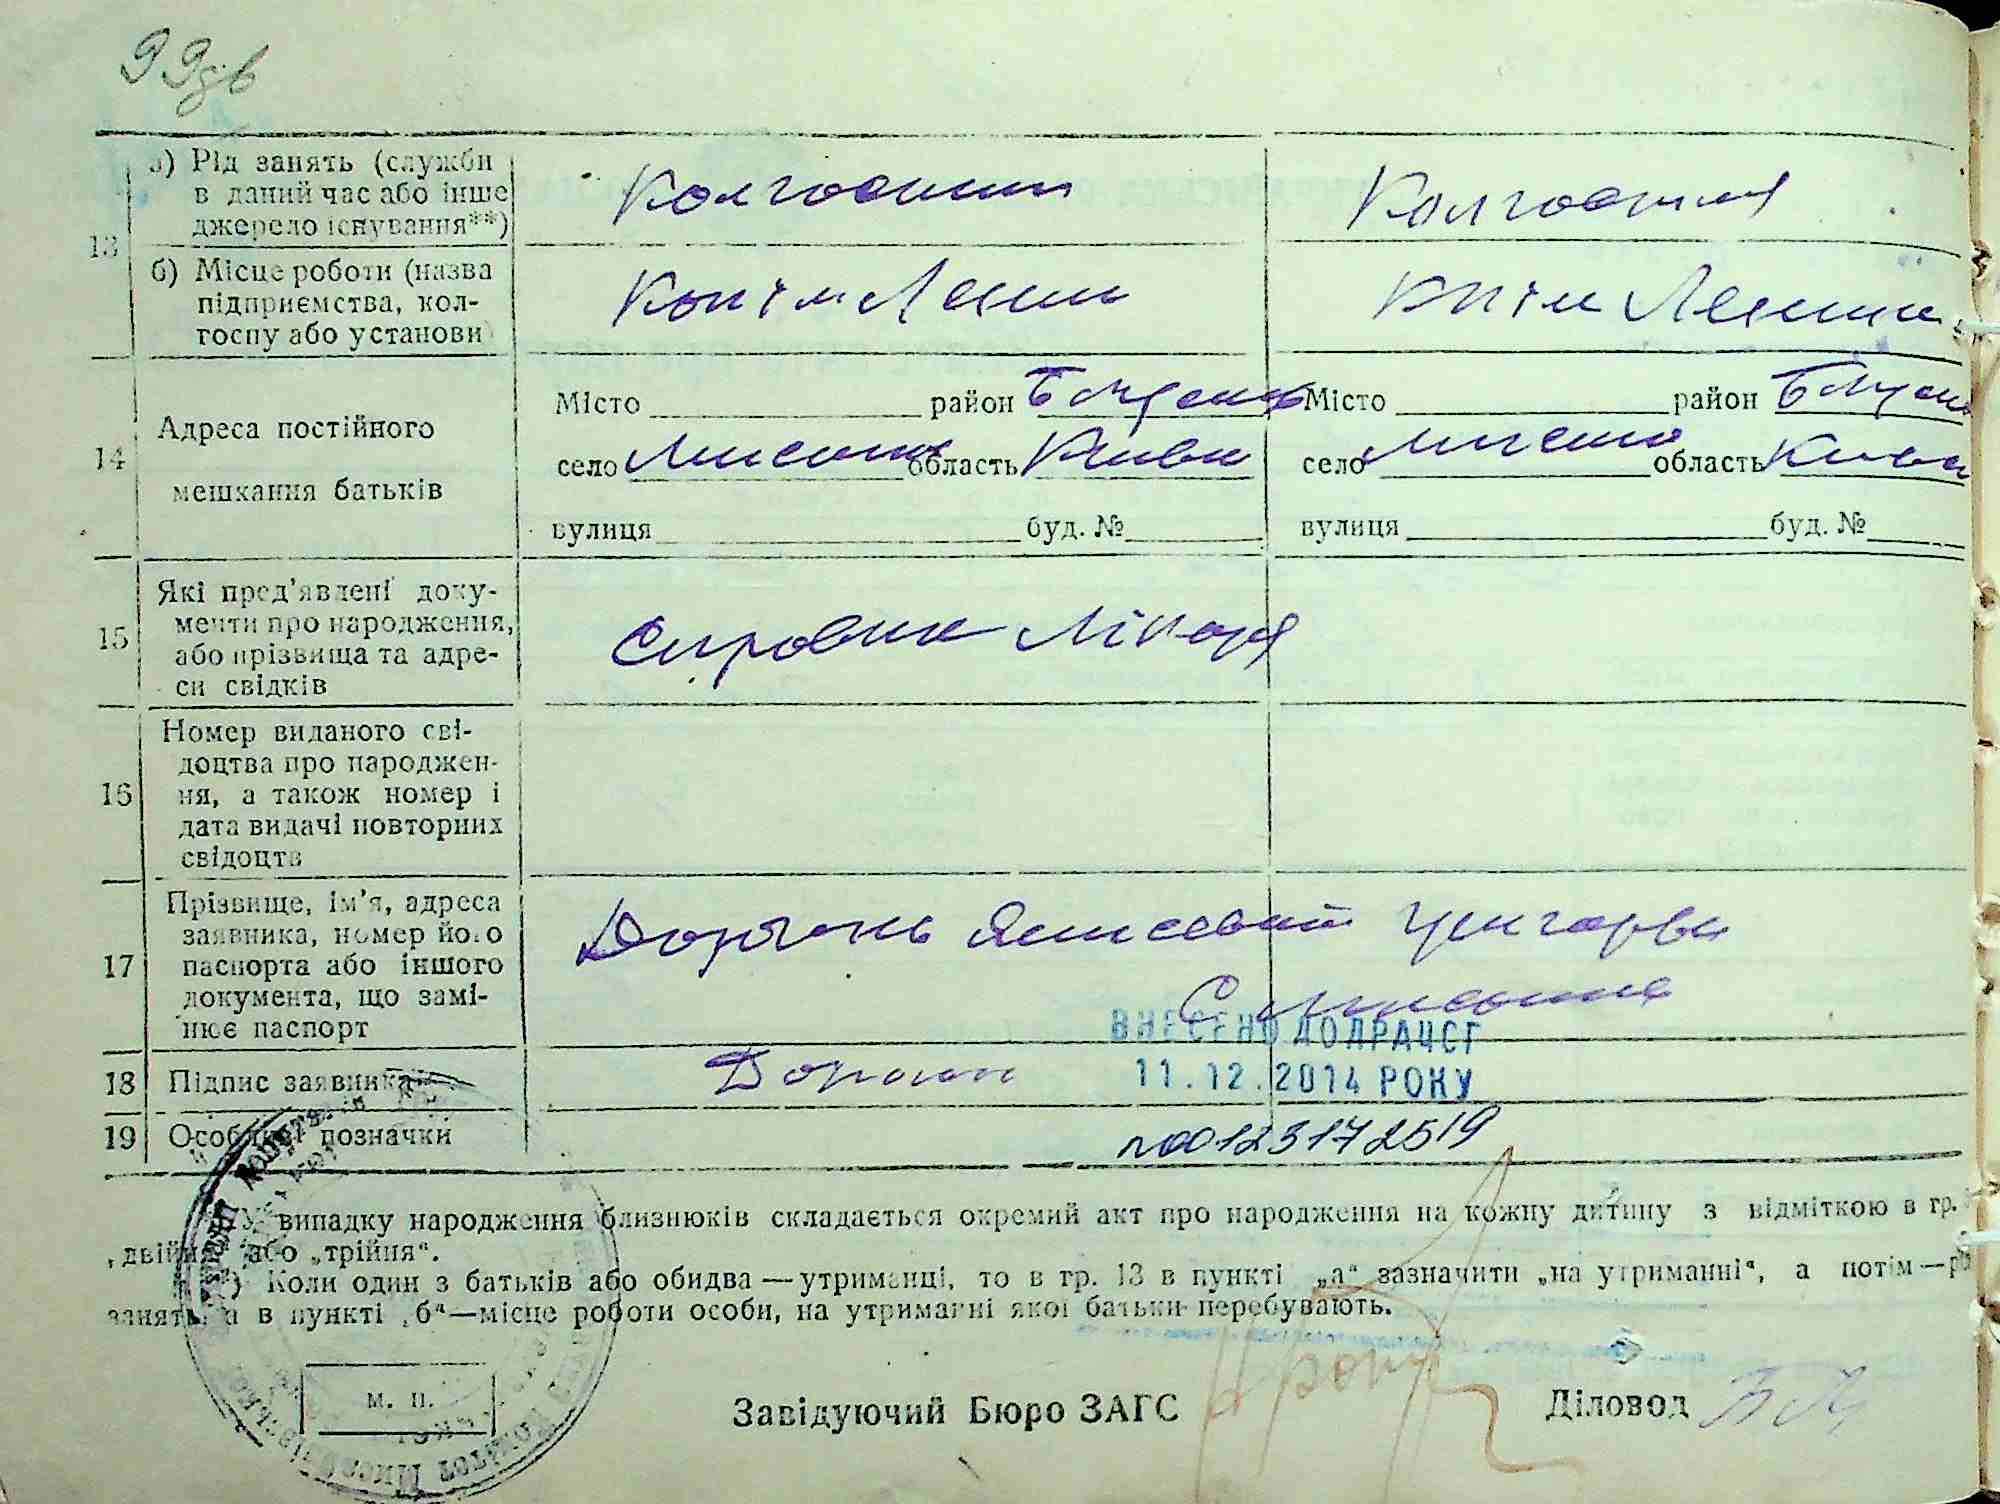 99зв
13 а) Рід занять (служби в даний час або інше джерело існування**)
Колгоспник
Колгоспниця
б) Місце роботи (назва підприємства, колгоспу або установи)
ім Лени
ім Ленина
14 Адреса постійного мешкання батьків
Місто район
село область Київ
вулиця буд. №
Місто район
село область Київ
вулиця буд. №
15 Які пред'явлені документи про народження, або прізвища та адреси свідків
Справка лікаря
16 Номер виданого свідоцтва про народження, а також номер і дата видачі повторних свідоцтв
17 Прізвище, ім'я, адреса заявника, номер його паспорта або іншого документа, що замінює паспорт
ВНЕСЕНО ДО ДРАЦСГ
18 Підпис заявника
11.12.2014 РОКУ
19 Особливі позначки
№00123172519
У випадку народження близнюків складається окремий акт про народження на кожну дитину з відміткою в гр.
„двійня" або „трійня".
Коли один з батьків або обидва — утриманці, то в гр. 13 в пункті „а" зазначити „на утриманні", а потім — рід
занять, а в пункті „б" — місце роботи особи, на утриманні якої батьки перебувають.
М. П.
Завідуючий Бюро ЗАГС
Діловод